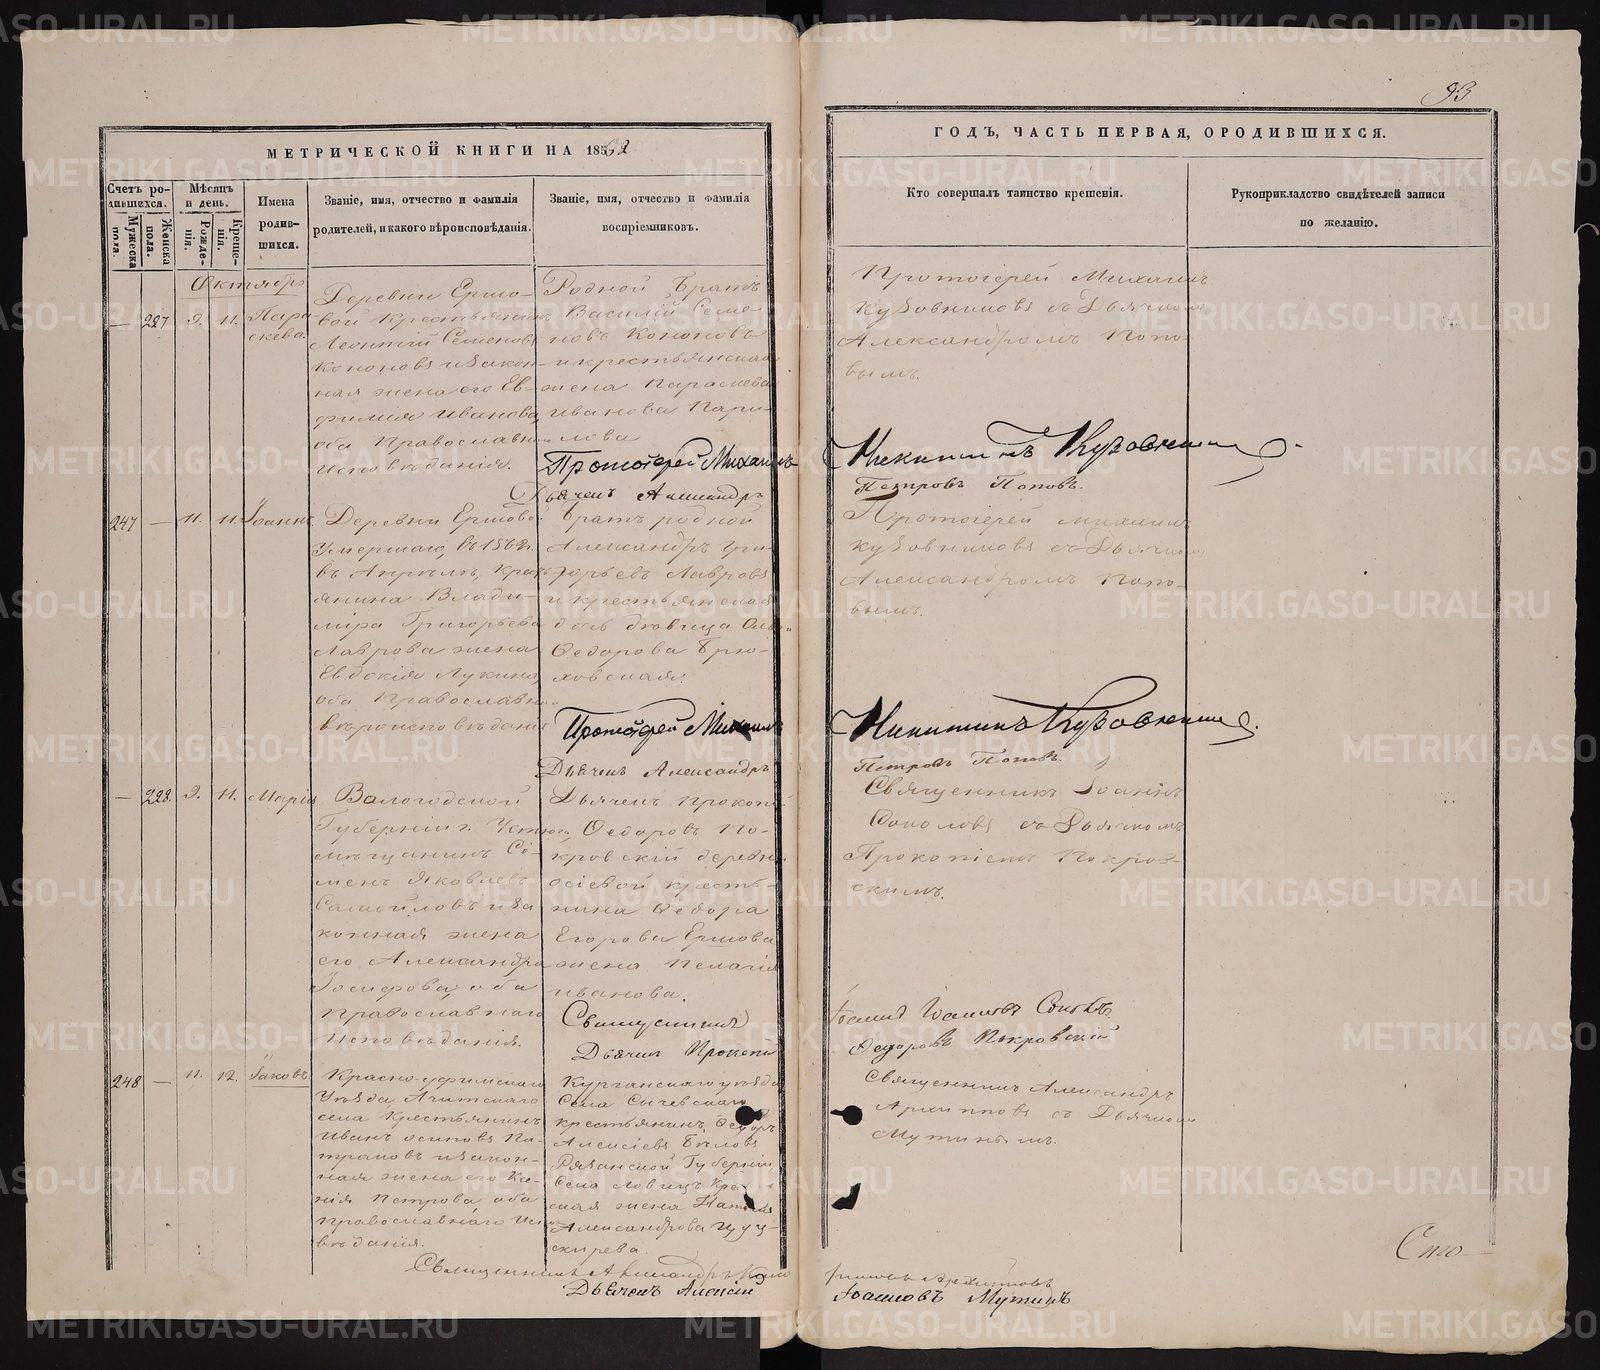 93
МЕТРИЧЕСКОЙ КНИГИ НА 1862
ГОДЪ, ЧАСТЬ ПЕРВАЯ, О РОДИВШИХСЯ.
Счетъ ро-
дившихся.
Мужеска
пола.
Женска
пола.
Мѣсяцъ
и день.
Рожде-
нія.
Креще-
нія.
Имена
родив-
шихся.
Званіе, имя, отчество и фамилія
родителей, и какого вѣроисповѣданія.
Званіе, имя, отчество и фамилія
воспріемниковъ.
Кто совершалъ таинство крещенія.
Рукоприкладство свидѣтелей записи
по желанію.
Октябрь
— 227 9. 11. Пара-
скева.
Деревни Ершо-
вой крестьянинъ
Леонтій Семеновъ
Кононовъ и закон-
ная жена его Ев-
фимія Иванова,
оба Православнаго
исповѣданія.
Родной братъ
Василій Семе-
новъ Кононовъ
и крестьянская
жена Параскева
Иванова Кари-
лова
Протоіерей Михаилъ
Кузовниковъ съ Дьячкомъ
Александромъ Попо-
вымъ.
Протоіерей Михаилъ Никитинъ Кузовниковъ
Дьячекъ Александръ Петровъ Поповъ.
247 — 11. 11. Іоаннъ
Деревни Ершовой
Умершаго, въ 1862 г.
въ Апрѣлѣ, крестъ-
янина Влади-
міра Григорьева
Лаврова жена
Евдокія Лукина,
оба Православнаго
вѣроисповѣданія
Братъ родной
Александръ Гри-
горьевъ Лавровъ
и крестьянская
дочь дѣвица
Федорова Брю-
ховская.
Протоіерей Михаилъ
Кузовниковъ съ Дьячкомъ
Александромъ Попо-
вымъ.
Протоіерей Михаилъ Никитинъ Кузовниковъ.
Дьячекъ Александръ Петровъ Поповъ.
— 228 9. 11. Марія
Вологодской
Губерніи г. Устюга,
мѣщанинъ Сі-
менъ Яковлевъ
Самойловъ и за
конная жена
его Александра
Іосифова, оба
Православнаго
исповѣданія.
Дьячекъ Прокопій
Ѳедоровъ По-
кровскій деревни
осіевой кресть-
янина Ѳедора
Егорова Ершова
жена Пелагія
Иванова.
Священникъ Іоаннъ
Соколовъ съ Дьячкомъ
Прокопіемъ Покров-
скимъ.
Священникъ Іоаннъ Іоанновъ Соколовъ
Дьячекъ Прокопій Ѳедоровъ Покровскій
248 — 11. 12. Іаковъ
Красно-уфимскаго
Уѣзда Ачитскаго
села Крестьянинъ
Иванъ осиповъ Па-
траковъ и закон-
ная жена его
Петрова, оба
православнаго
вѣданія.
Курганскаго уѣзда
Села Сычевскаго
крестьянинъ, Ѳедоръ
Алексіевъ Бѣловъ
Рязанской Губерніи
Села Ловецъ
ская жена
Александрова
Священникъ Александръ
Архиповъ съ Дьячкомъ
Мутинымъ.
Священникъ Александръ
Дьячекъ Алексій Іоанновъ Мутинъ
METRIKI.GASO-URAL.RU